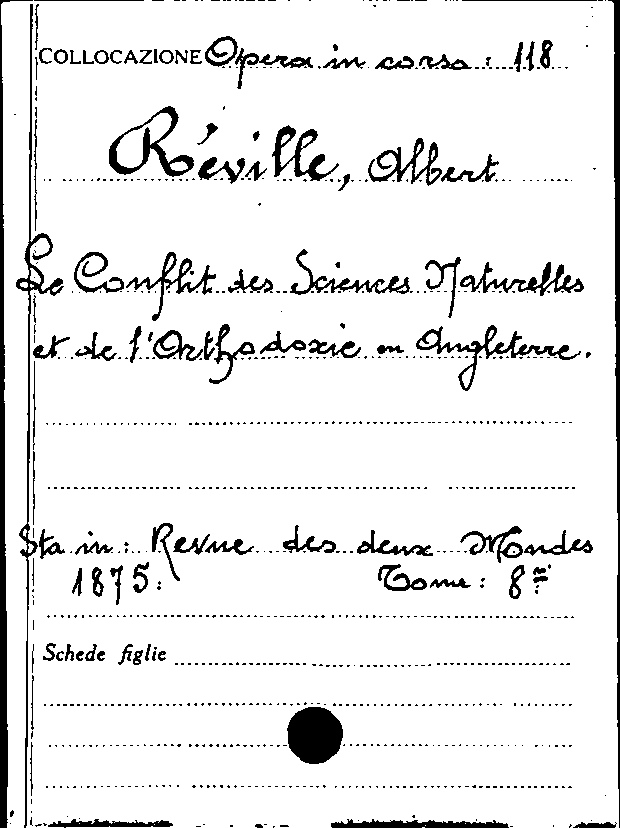 COLLOCAZIONE Opera in corso: 118
Réville, Albert
Le Conflit des Sciences Naturelles
et de l'Orthodoxie en Angleterre.
Sta in: Revue des deux Mondes
1875. Tome: 8me
Schede figlie